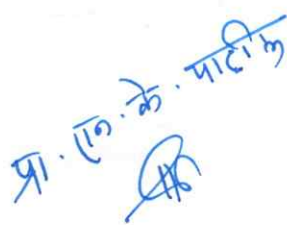 प्रा. एन. के. पाटील